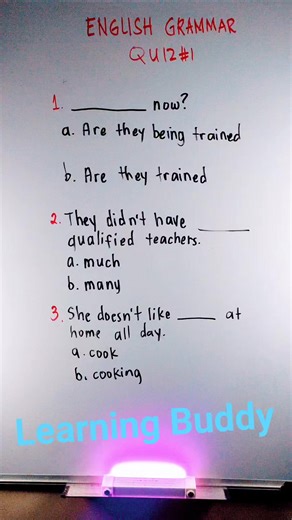 ENGLISH GRAMMAR
QUIZ#1
1. ________ now?
a. Are they being trained
b. Are they trained
2. They didn't have ______
qualified teachers.
a. much
b. many
3. She doesn't like ____ at
home all day.
a. cook
b. cooking
Learning Buddy